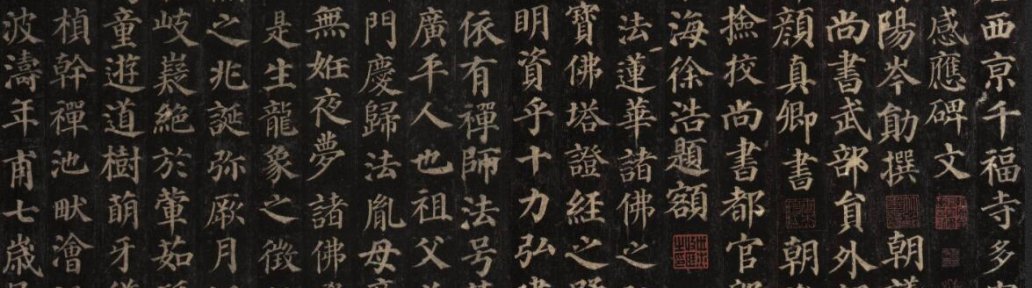 西亰千福寺多
感應碑文
陽岑勛撰 朝
尚書武部貟外
顏真卿書 朝
撿挍尚書都官
海徐浩題額
法蓮華諸佛之
寶佛塔證經之
明資乎十力弘
依有禪師法号
廣平人也祖父
門慶歸法胤母
無姙夜夢諸佛
是生龍象之徵
之兆誕弥厥月
岐嶷絕於葷茹
童遊道樹萌牙
楨幹禪池畎澮
波濤年甫七歲